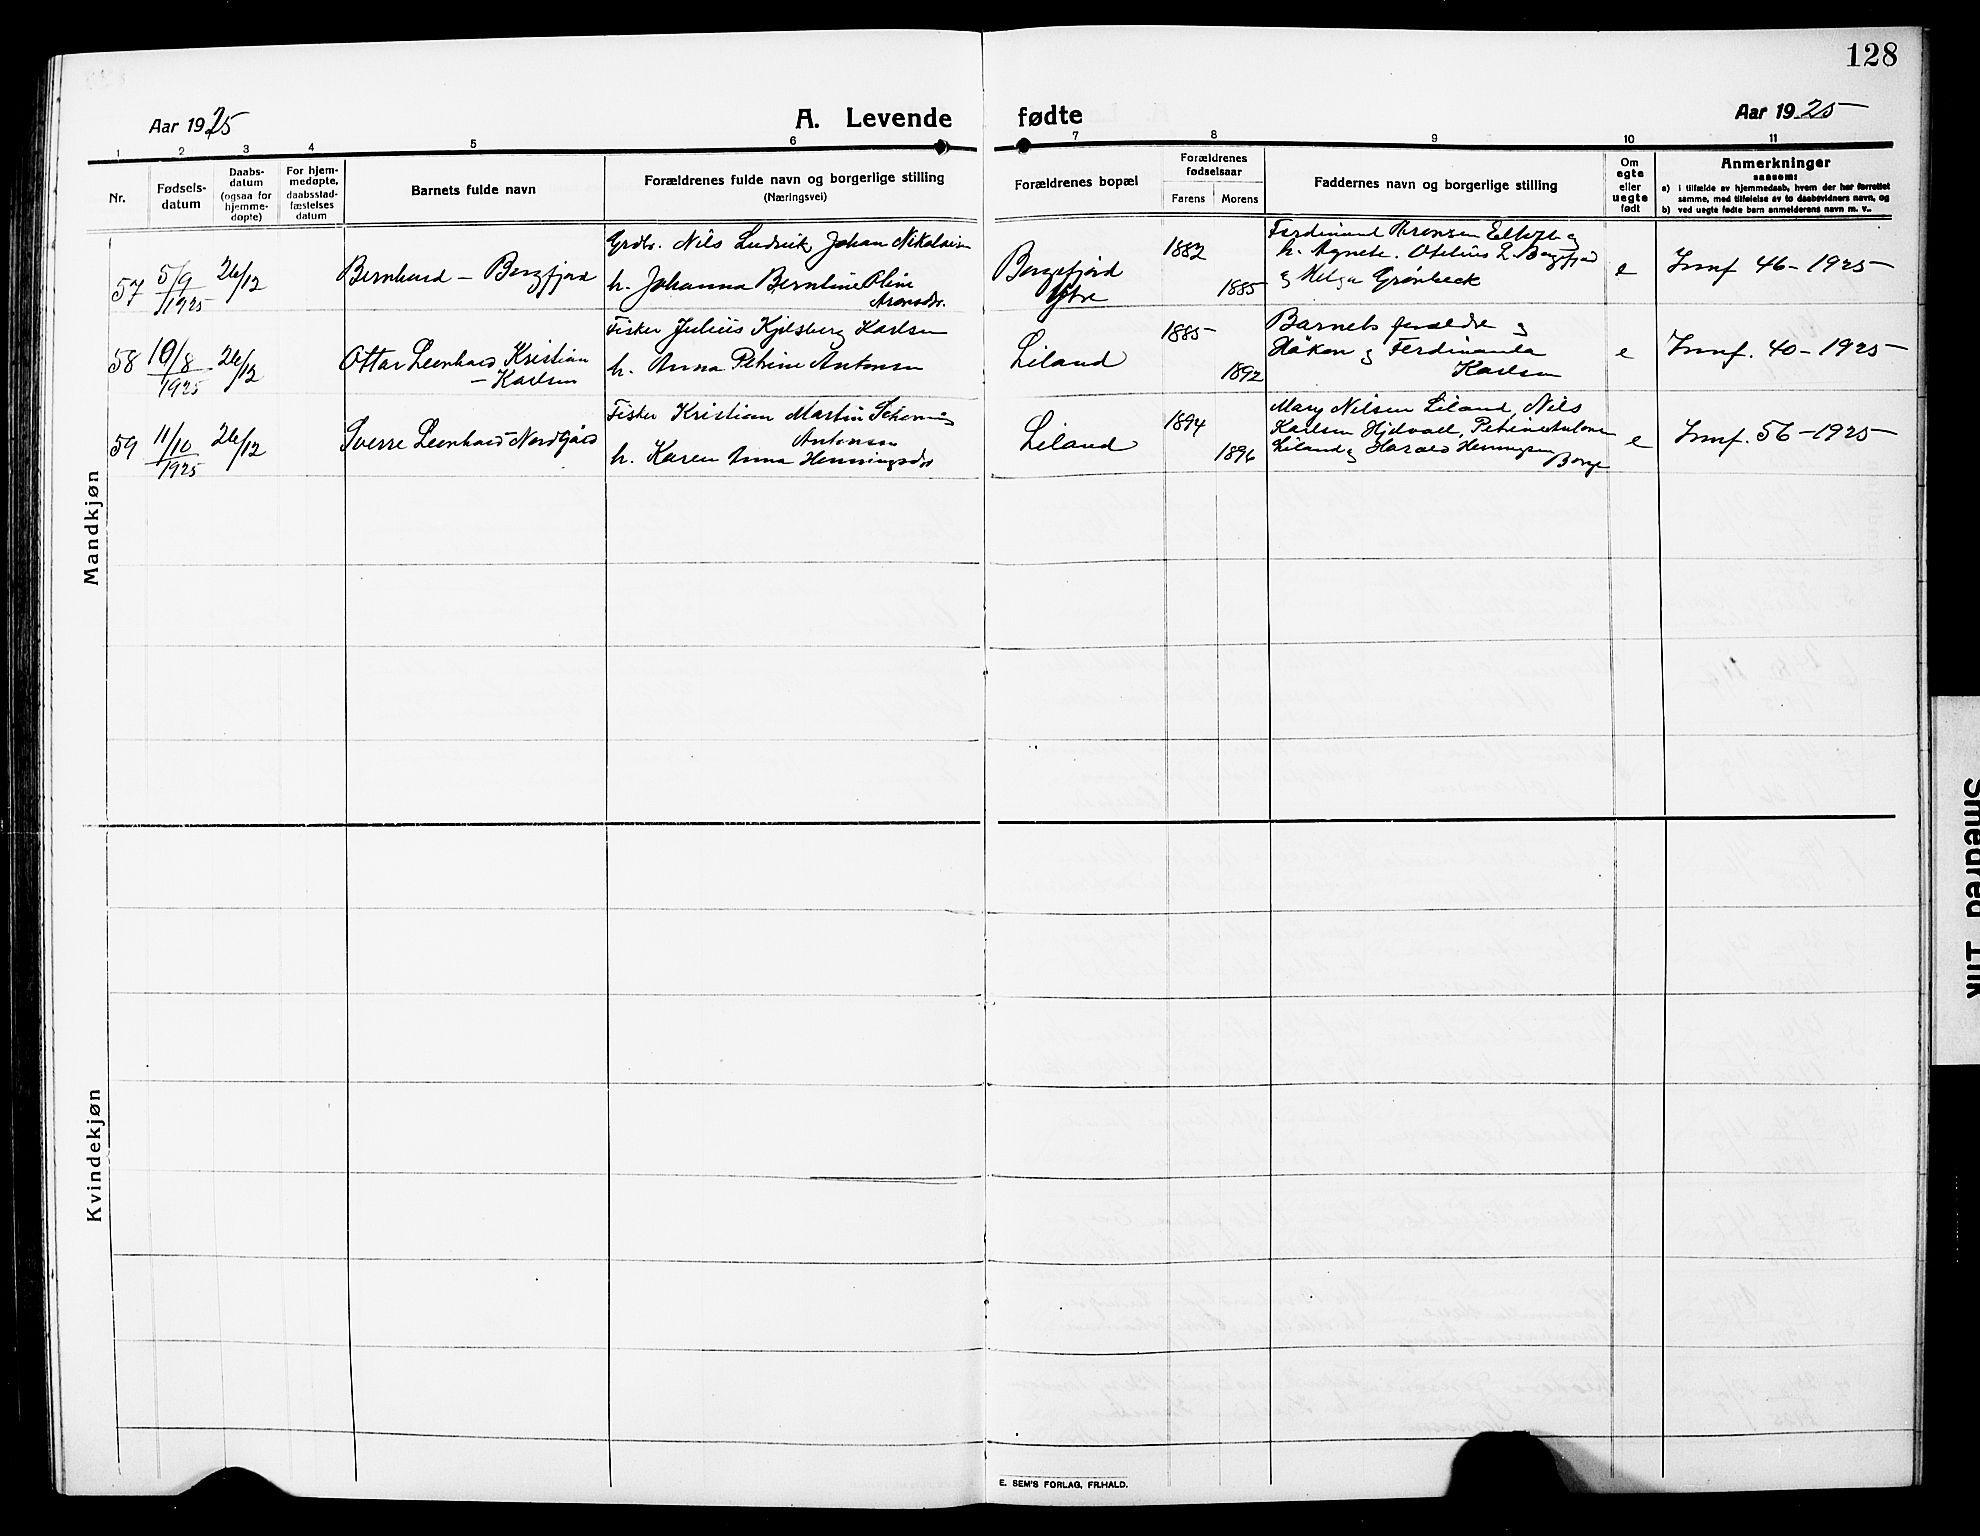 128
Aar 1925
A. Levende fødte
Aar 1925
1 2 3 4 5 6 7 8 9 10 11
Nr.
Fødsels-
datum
Daabs-
datum
(ogsaa for
hjemme-
døpte)
For hjem-
medøpte,
daabsstad-
fæstelses
datum
Barnets fulde navn
Forældrenes fulde navn og borgerlige stilling
(Næringsvei)
Forældrenes bopæl
Forældrenes
fødselsaar
Farens Morens
Faddernes navn og borgerlige stilling
Om
egte
eller
uegte
født
Anmerkninger
sausom:
a) i tilfælde av hjemmedaab, hvem der har forrettet
samme, med tilføielse av to daabsvidners navn, og
b) ved uegte fødte barn anmelderens navn m. v..
Mandkjøn
57 5/9 1925 26/12 Bernhard – Borgfjord
Grdbr. Nils Ludvik Johan Nikolaisen
h. Johanna Berntine Oline
Aronsdr.
Borgefjord
Ytre
1882
1885
Ferdinand Aronsen
h. Agnete. Otelius L. Borgfjord
og Helga Grønbeck
e
Innf 46 – 1925
58 10/8 1925 26/12 Ottar Leonhard Kristian
– Karlsen
Fisker Julius Kjilsberg Karlsen
h. Anna Petrine Antonsen
Liland
1885
1892
Barnets forældre og
Håkon og Ferdinanda
Karlsen
e
Innf. 40 – 1925
59 11/10 1925 26/12 Sverre Leonhard Nordgård
Fisker Kristian Martin
Antonsen
h. Karen Anna Henningsdr
Liland
1894
1896
Mary Nilsen Liland, Nils
Karlsen Hjelvoll, Petrine Antonsen
Liland og Harald Henningsen
Borge
e
Innf. 56 – 1925
Kvindekjøn
E. SEM'S FORLAG, FR.HALD.